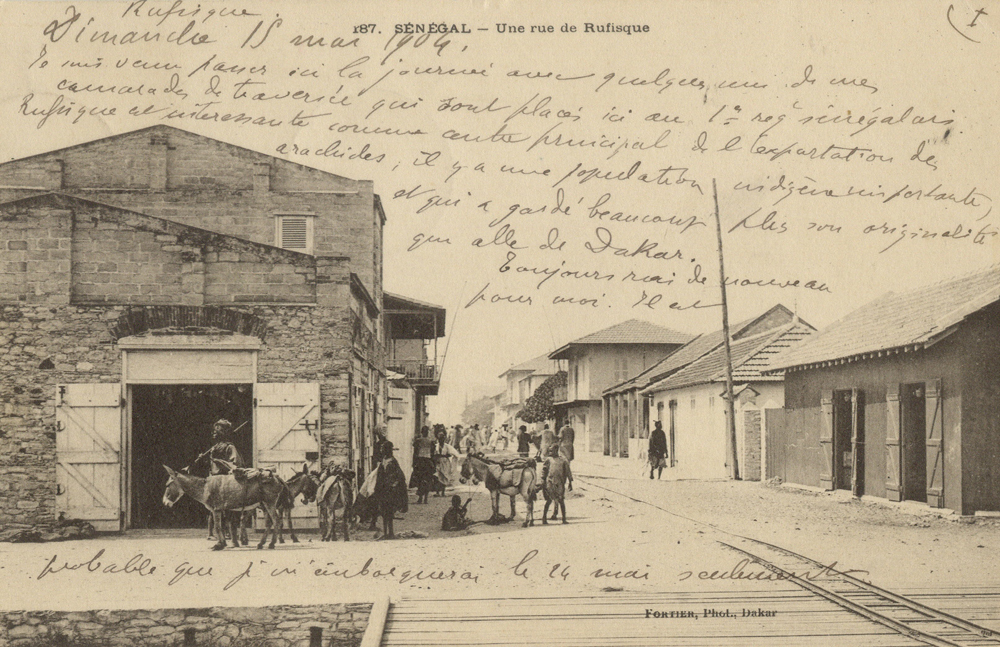 Rufisque.
187. SÉNÉGAL — Une rue de Rufisque
Dimanche 15 mai 1904.
Je suis venu passer ici la journée avec quelques uns de mes
camarades de traversée qui sont placés ici au 1er rég sénégalais.
Rufisque est intéressante comme centre principal de l'exportation des
arachides, il y a une population indigène importante,
et qui a gardé beaucoup plus son originalité
que celle de Dakar.
Toujours rien de nouveau
pour moi. Il est
probable que je m'embarquerai le 24 mai seulement.
FORTIER, Phot., Dakar